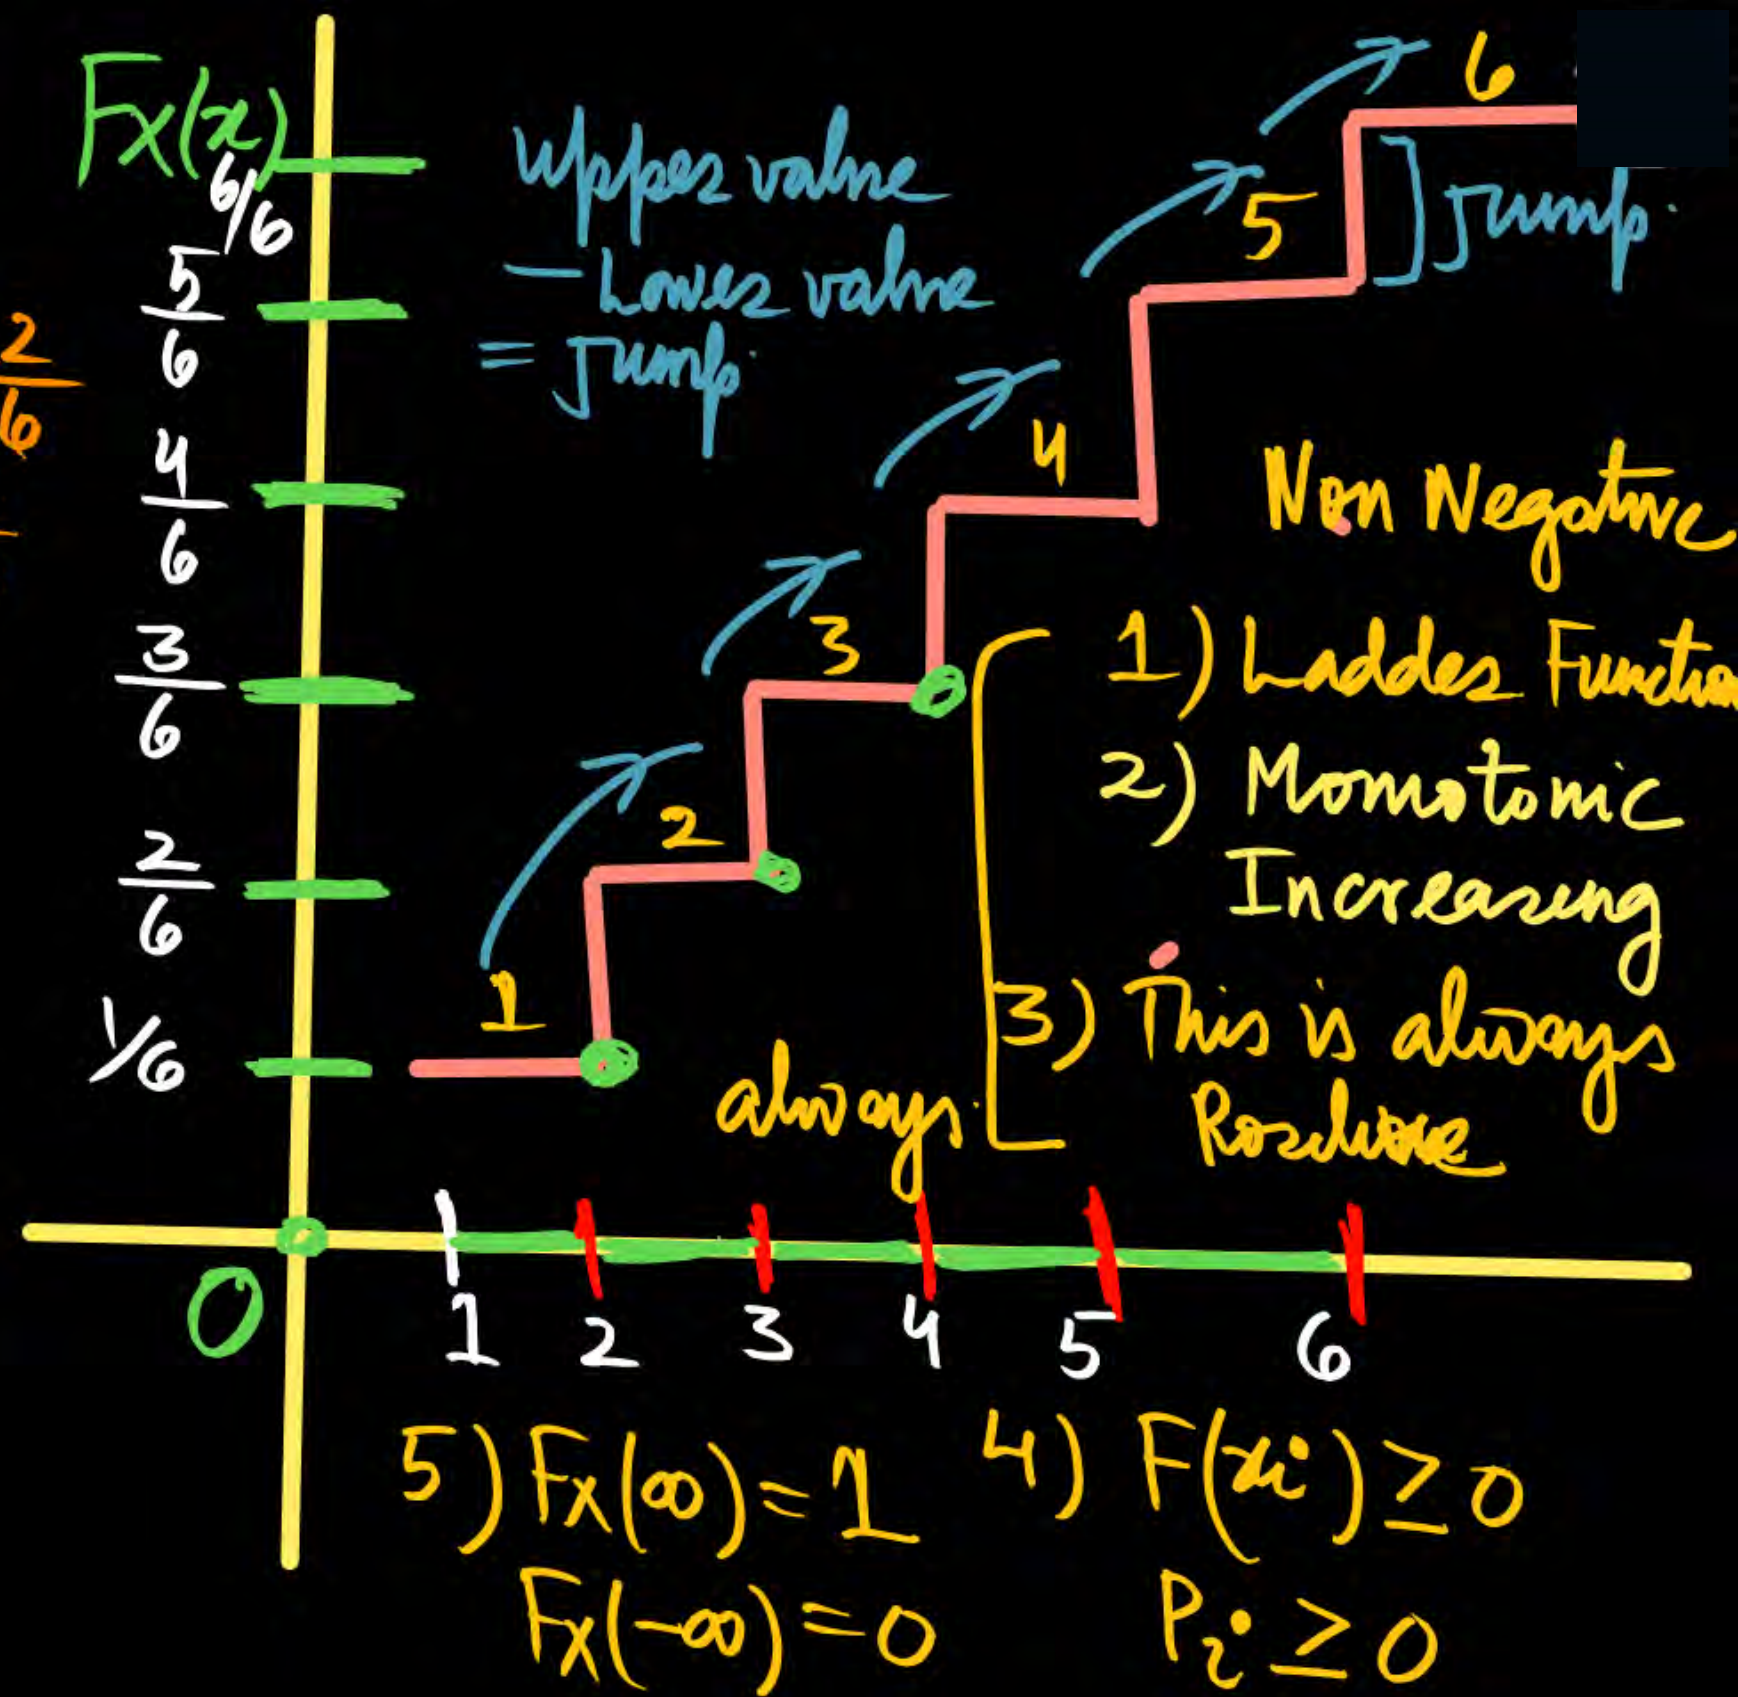 Fx(x)
6/6
5/6
4/6
3/6
2/6
1/6
2/6
Upper value
- Lower value
= Jump
1
2
3
4
5
6
Jump
Non Negative
1) Ladder Function
2) Monotonic
Increasing
3) This is always
Positive
always
0
1 2 3 4 5 6
5) Fx(∞) = 1
Fx(-∞) = 0
4) F(xi) ≥ 0
Pi ≥ 0